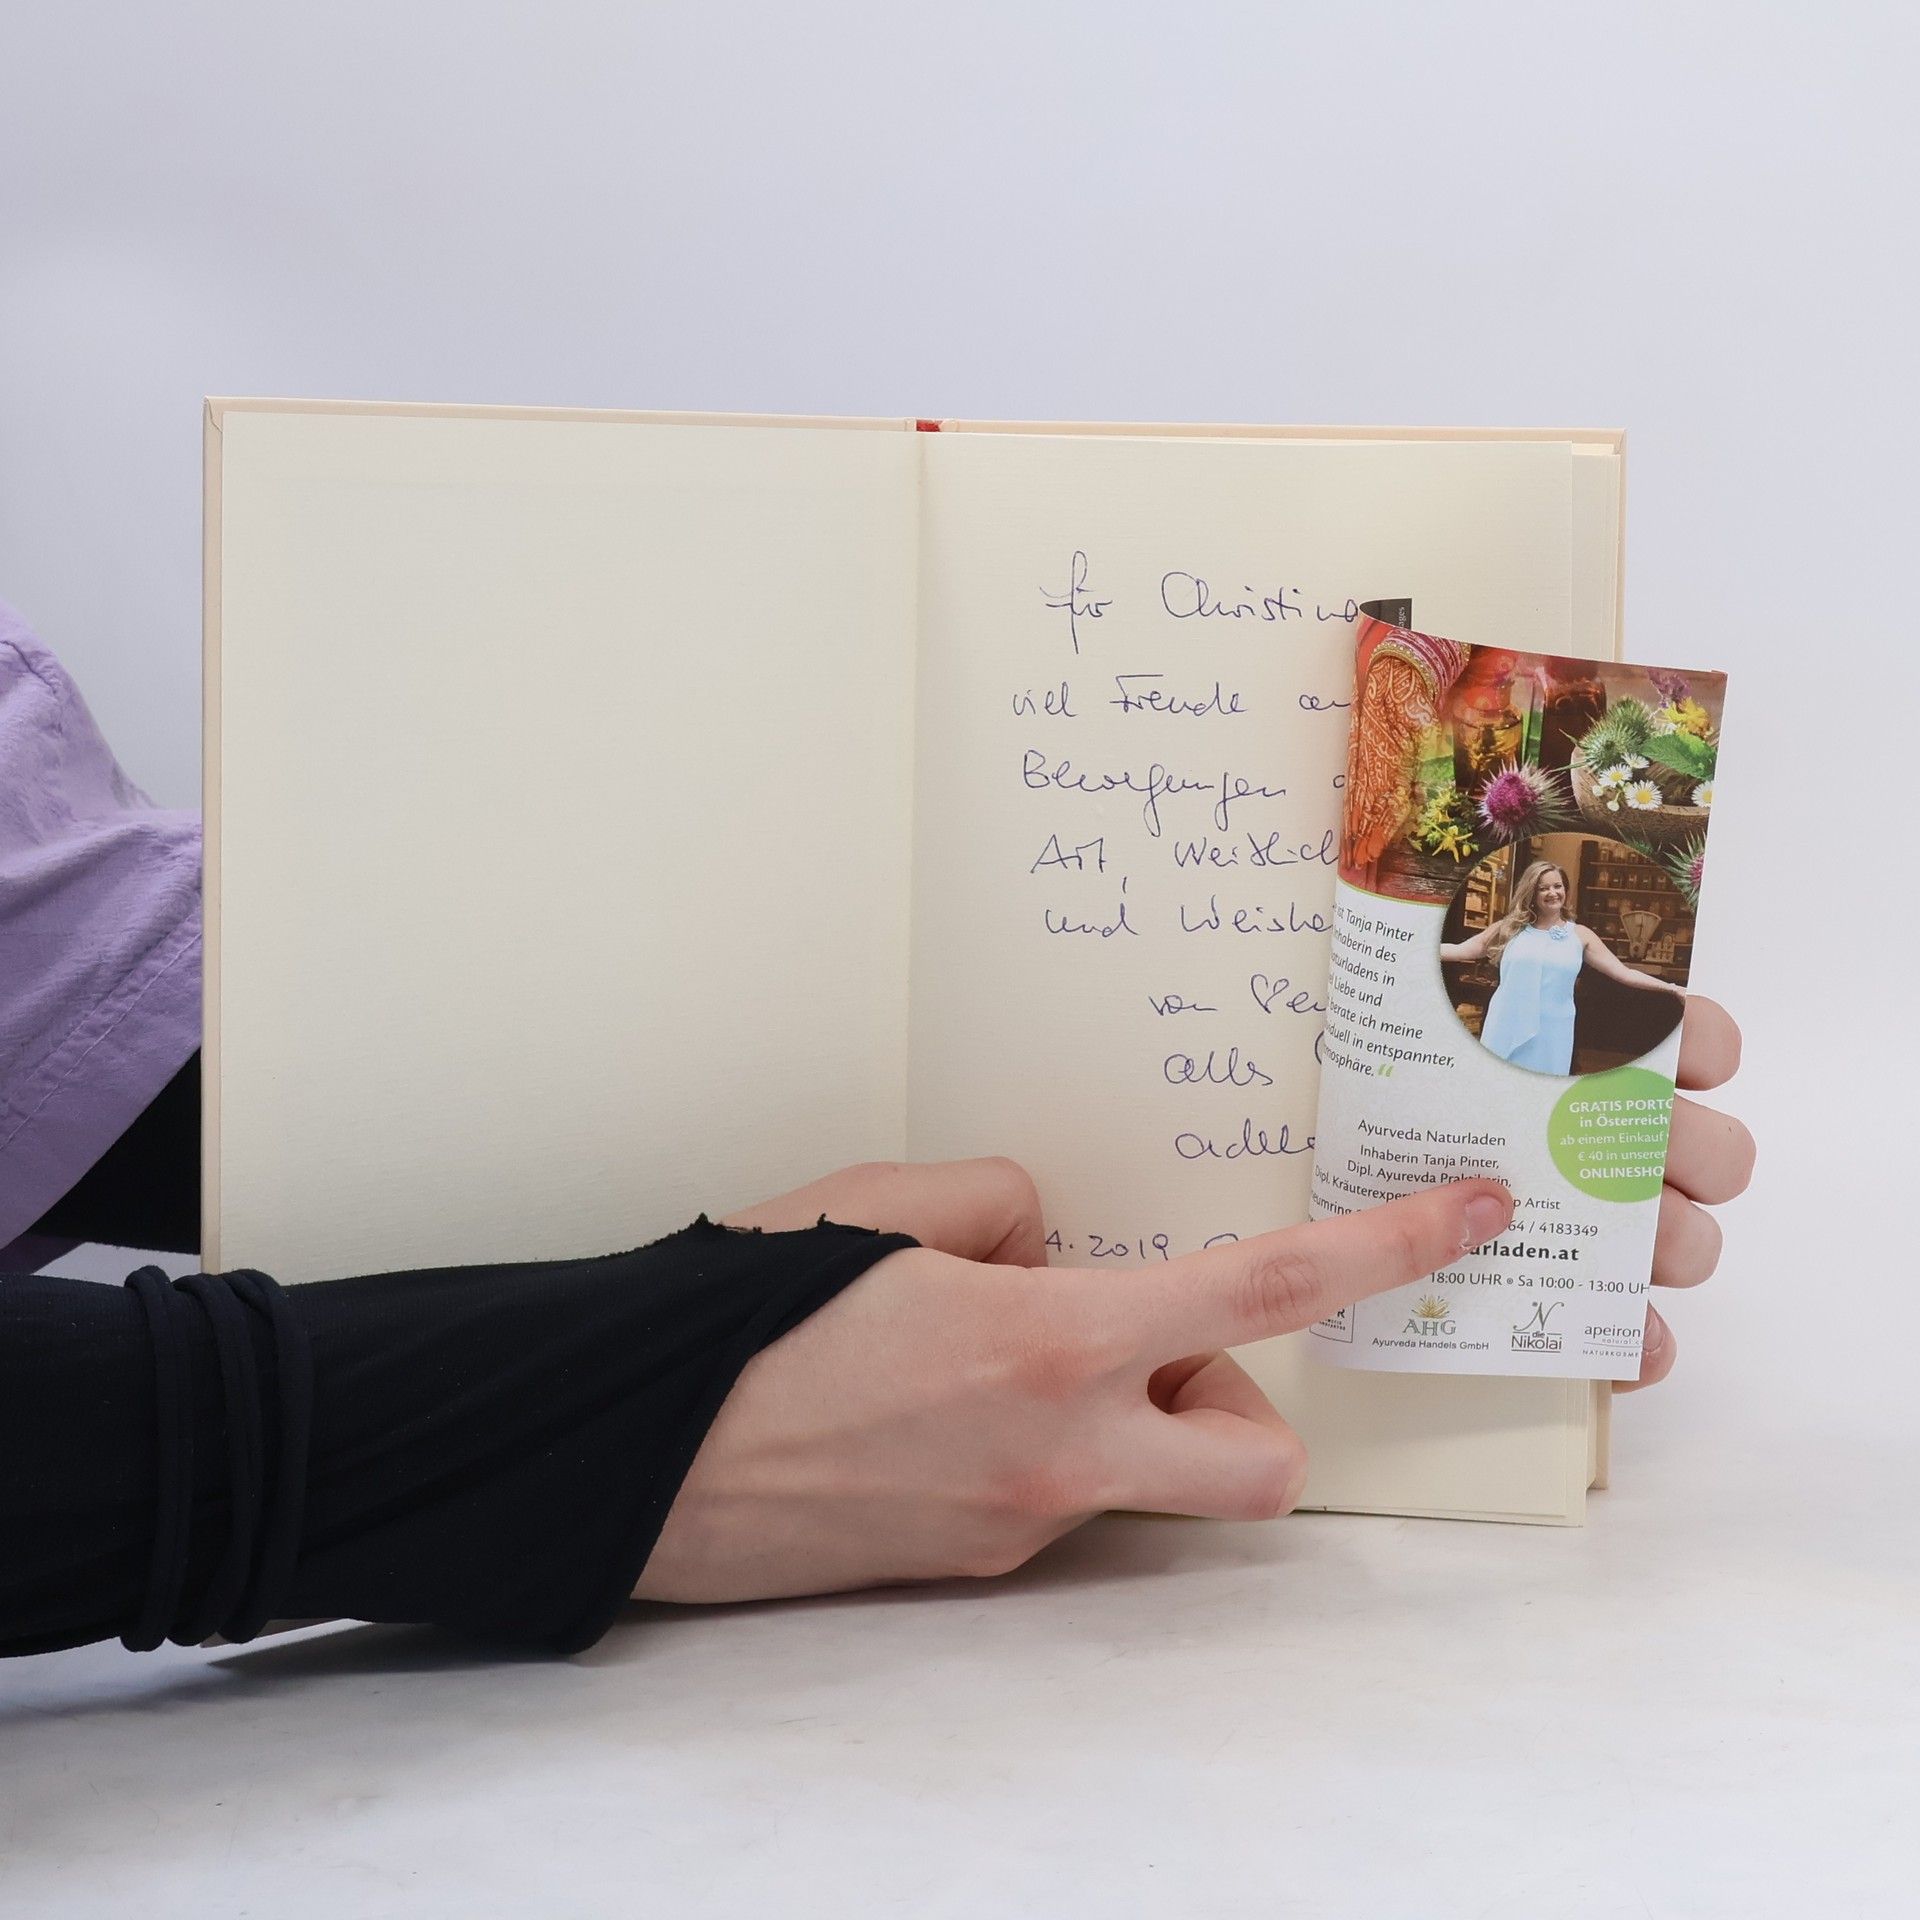 für Christine
viel Freude an
Bewegungen
Art, Weiblich
und Weishe
von
alles
4.2019
ages
ist Tanja Pinter
Inhaberin des
Naturladens in
Liebe und
berate ich meine
iduell in entspannter,
mosphäre.“
GRATIS PORTO
in Österreich
ab einem Einkauf
€ 40 in unserer
ONLINESHO
Ayurveda Naturladen
Inhaberin Tanja Pinter,
Dipl. Ayurevda Praktikerin,
Dipl. Kräuterexper p Artist
eumring 64 / 4183349
urladen.at
18:00 UHR • Sa 10:00 - 13:00 UH
AHG
Ayurveda Handels GmbH
N
die
Nikolai
apeiron
natural c
NATURKOSME